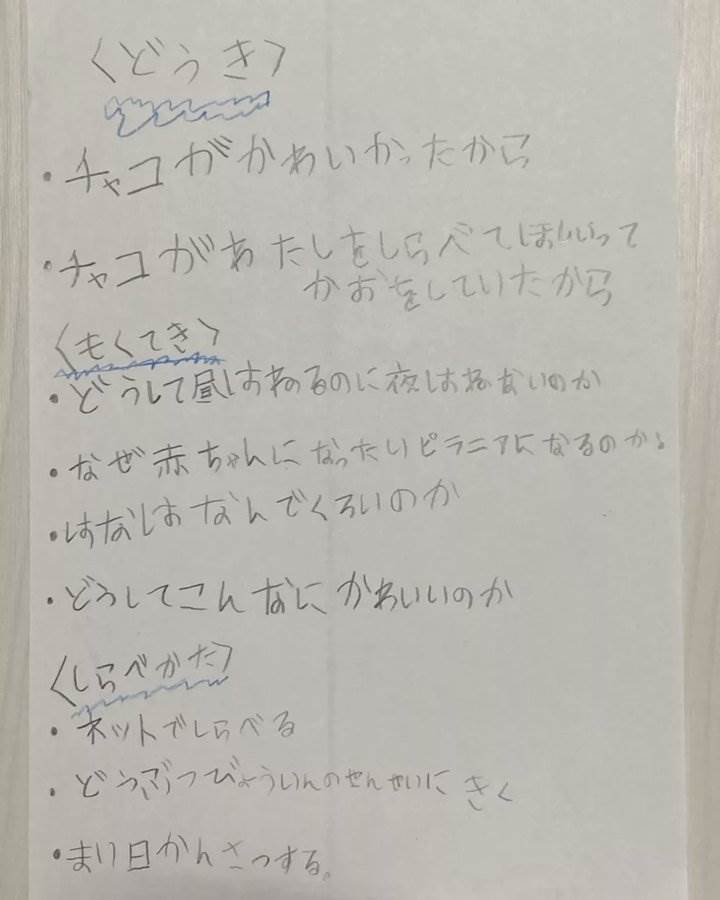 〈どうき〉
・チャコがかわいかったから
・チャコがわたしをしらべてほしいって
かおをしていたから
〈もくてき〉
・どうして昼はねるのに夜はねないのか
・なぜ赤ちゃんになったりピラニアになるのか。
・はなはなんでくろいのか
・どうしてこんなにかわいいのか
〈しらべかた〉
・ネットでしらべる
・どうぶつびょういんのせんせいにきく
・まい日かんさつする。